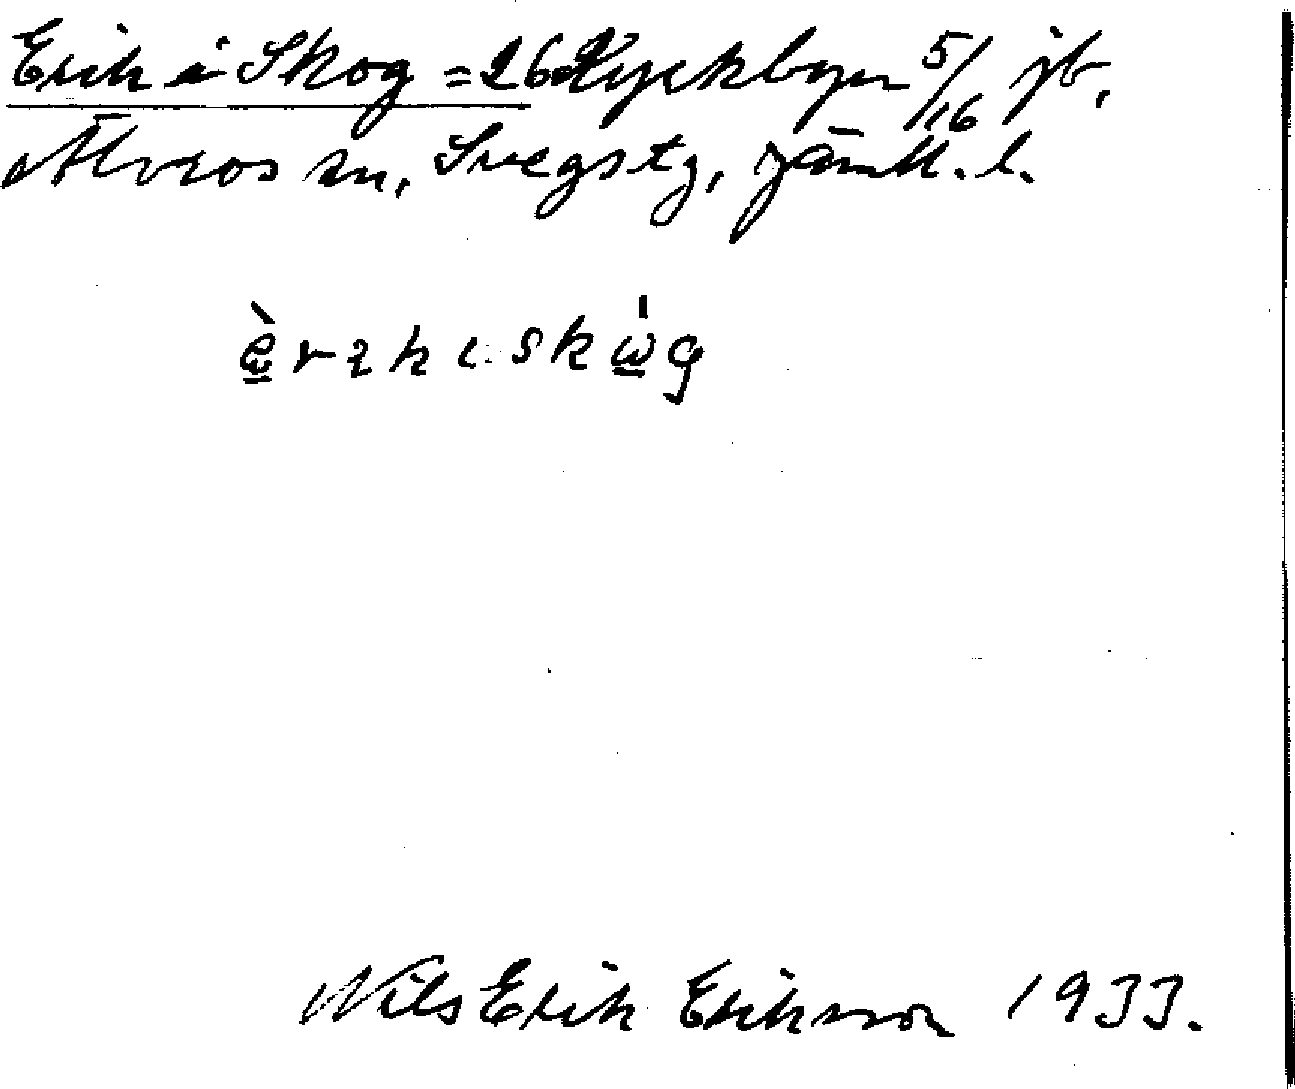 Erik i Skog = 26 Kyrkbyn 5/16 jb,
Älvros sn, Svegs tg, Jämtl. l.
Nils Erik Eriksson 1933.